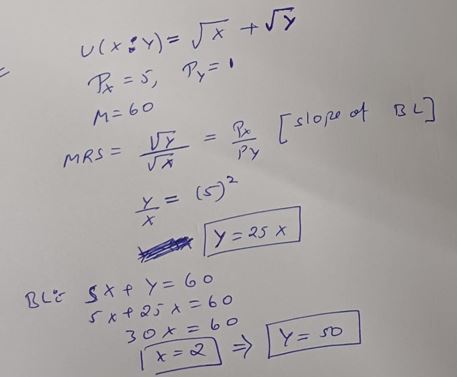 =
U(x:y) = √x + √y
Px = 5, Py = 1
M = 60
MRS = √y/√x = Px/Py [slope of BL]
y/x = (5)²
y = 25x
BL: 5x + y = 60
5x + 25x = 60
30x = 60
x = 2 ⇒ y = 50